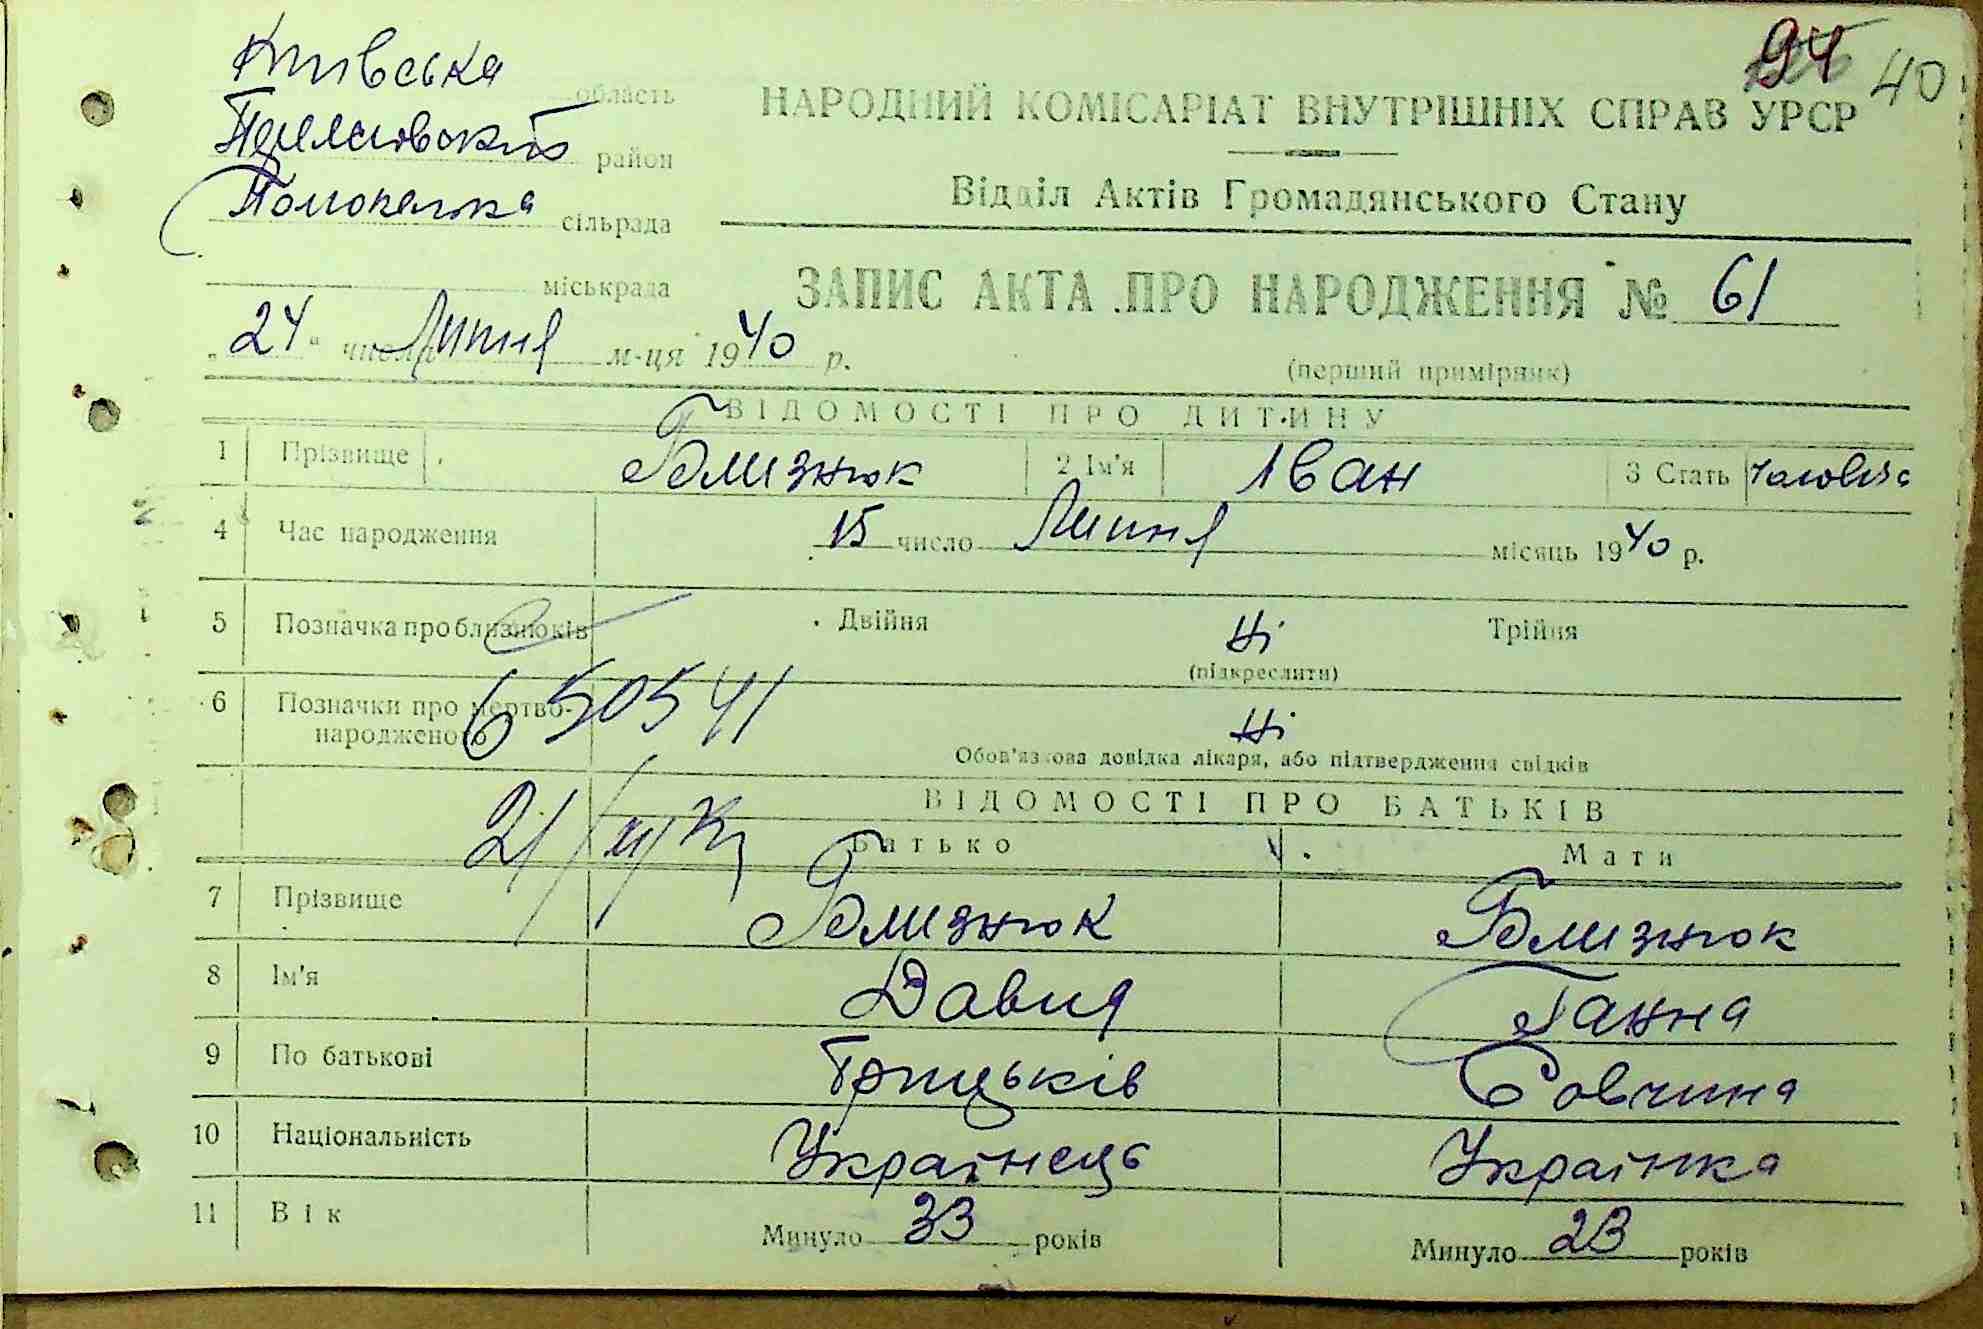 94 40
Київська область
район
сільрада
міськрада
НАРОДНИЙ КОМІСАРІАТ ВНУТРІШНІХ СПРАВ УРСР
Відділ Актів Громадянського Стану
ЗАПИС АКТА ПРО НАРОДЖЕННЯ № 61
„24“ числа Липня м-ця 1940 р.
(перший примірник)
ВІДОМОСТІ ПРО ДИТИНУ
1 Прізвище Близнюк 2 Ім'я Іван 3 Стать
4 Час народження 15 число Липня місяць 1940 р.
5 Позначка про близнюків Двійня Ні Трійня
(підкреслити)
6 Позначки про мертво-
народженого Ні
650541
Обов'язкова довідка лікаря, або підтвердження свідків
ВІДОМОСТІ ПРО БАТЬКІВ
21/
Батько Мати
7 Прізвище Близнюк Близнюк
8 Ім'я Давид Ганна
9 По батькові Грицьків Совчина
10 Національність Українець Українка
11 Вік Минуло 33 років Минуло 23 років